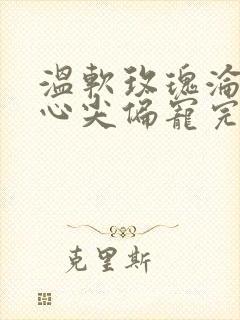 温軟玫瑰淪
心尖偏寵完
克里斯